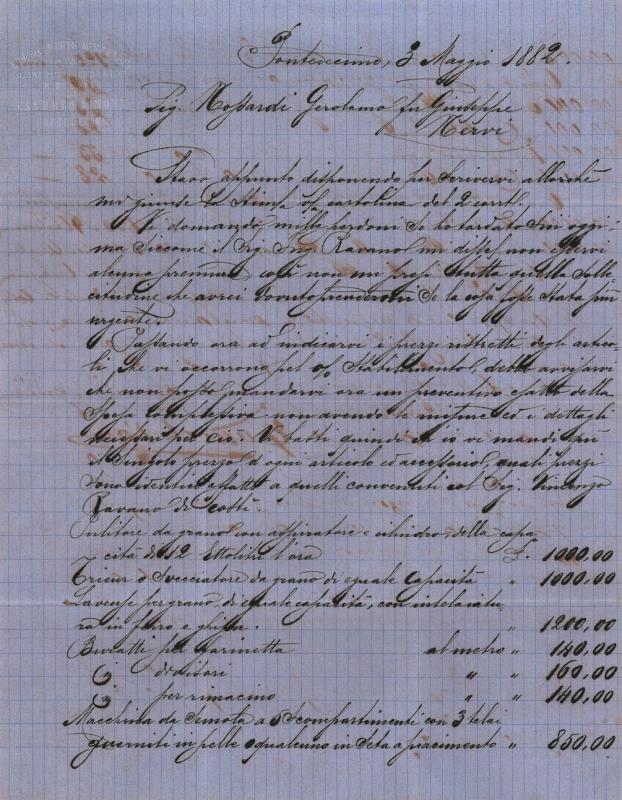 Pontedecimo, 3 Maggio 1882.
Sig. Mossardi Gerolamo fu Giuseppe
Nervi
Stavo appunto disponendo per scrivervi allorchè
mi giunse la stimª vs/ cartolina del 2 corrte.
Vi domando mille perdoni se ho tardato sin oggi
ma siccome il Sig. Ing. Ravano mi disse non esservi
alcuna premura così non mi presi tutta quella solle
citudine che avrei dovuto prendermi se la cosa fosse stata più
urgente.
Passando ora ad indicarvi i prezzi ristretti degli artico-
li, che vi occorrono pel vs/ Stabilimento, debbo avvisarvi
che non posso mandarvi ora un preventivo esatto della
spesa complessiva non avendo le misure ed i dettagli
necessari per ciò. quindi che io vi mando
il singolo prezzo d'ogni articolo ed accessorio, quali prezzi
sono identici affatto a quelli convenuti col Sig. Vincenzo
Ravano di costì.
Pulitore da grano con aspiratore e cilindro, della capa
cità di 12 Ettolitri l'ora £. 1000,00
Trieur o Svecciatore da grano di eguale Capacità " 1000,00
Laveuse per grano, di eguale capacità, con intelaiatu-
ra in ferro e ghisa. " 1200,00
Buratti per farinetta al metro " 140,00
Cj divisori " " 160,00
Cj per rimacino " " 140,00
Macchina da Semola a 5 Scompartimenti con 3 telai
guerniti in pelle o qualcuno in seta a piacimento " 850,00